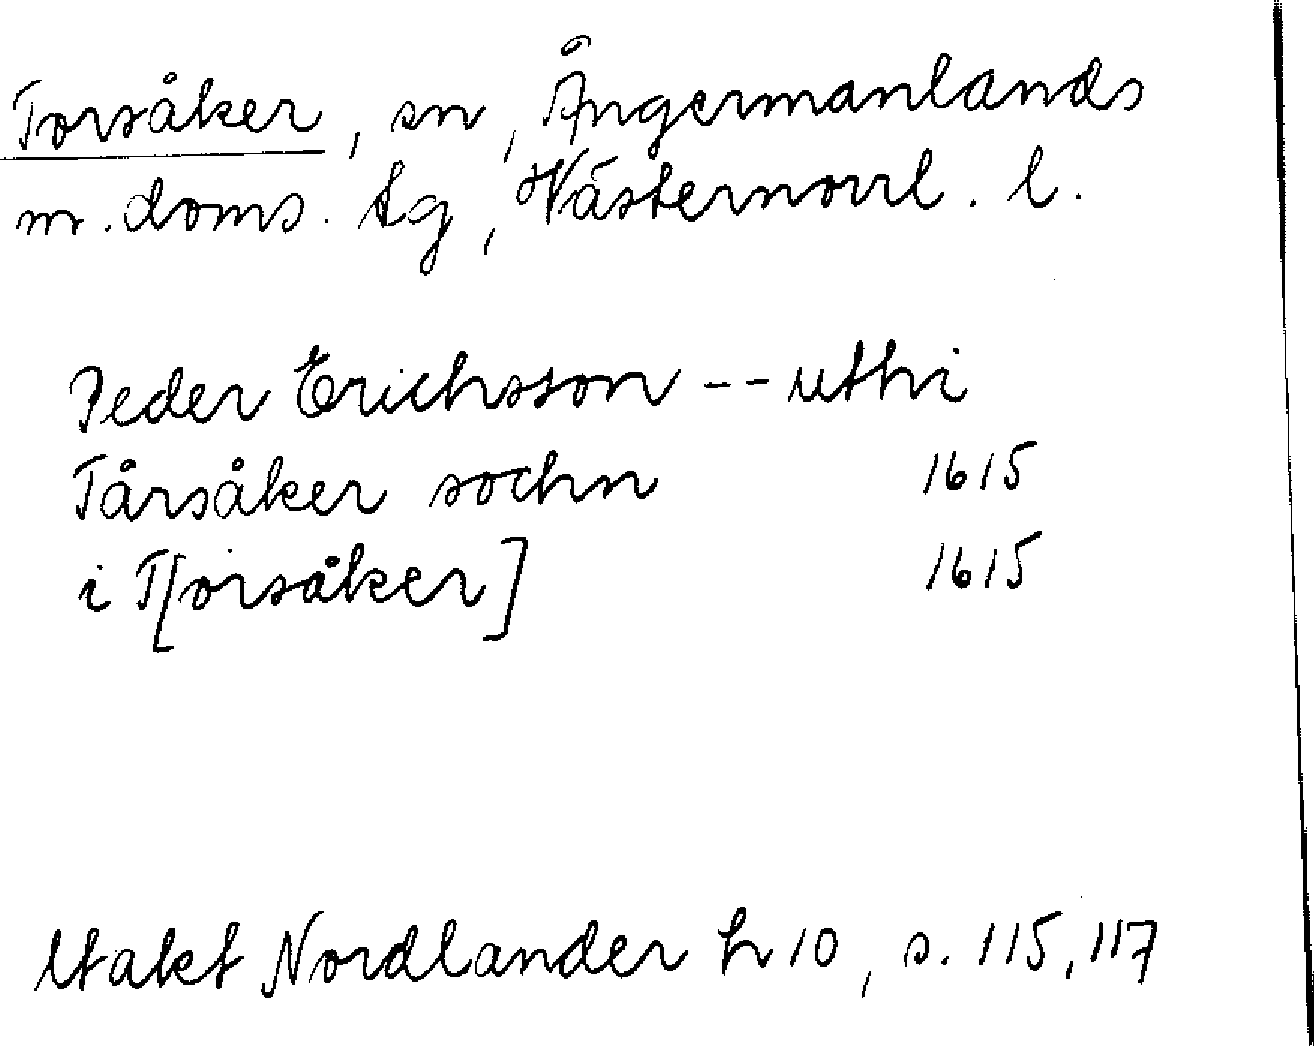 Torsåker, sn, Ångermanlands
m. doms. tg, Västernorrl. l.
Peder Erichsson -- uthi
Tårsåker sochn 1615
i T[orsåker] 1615
Utakt Nordlander h 10, s. 115, 117